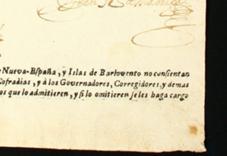 Nueva-España, y Islas de Barlovento no consientan
Cofradias, y à los Governadores, Corregidores, y demas
os que lo admitieren, y si lo omitieren se les haga cargo